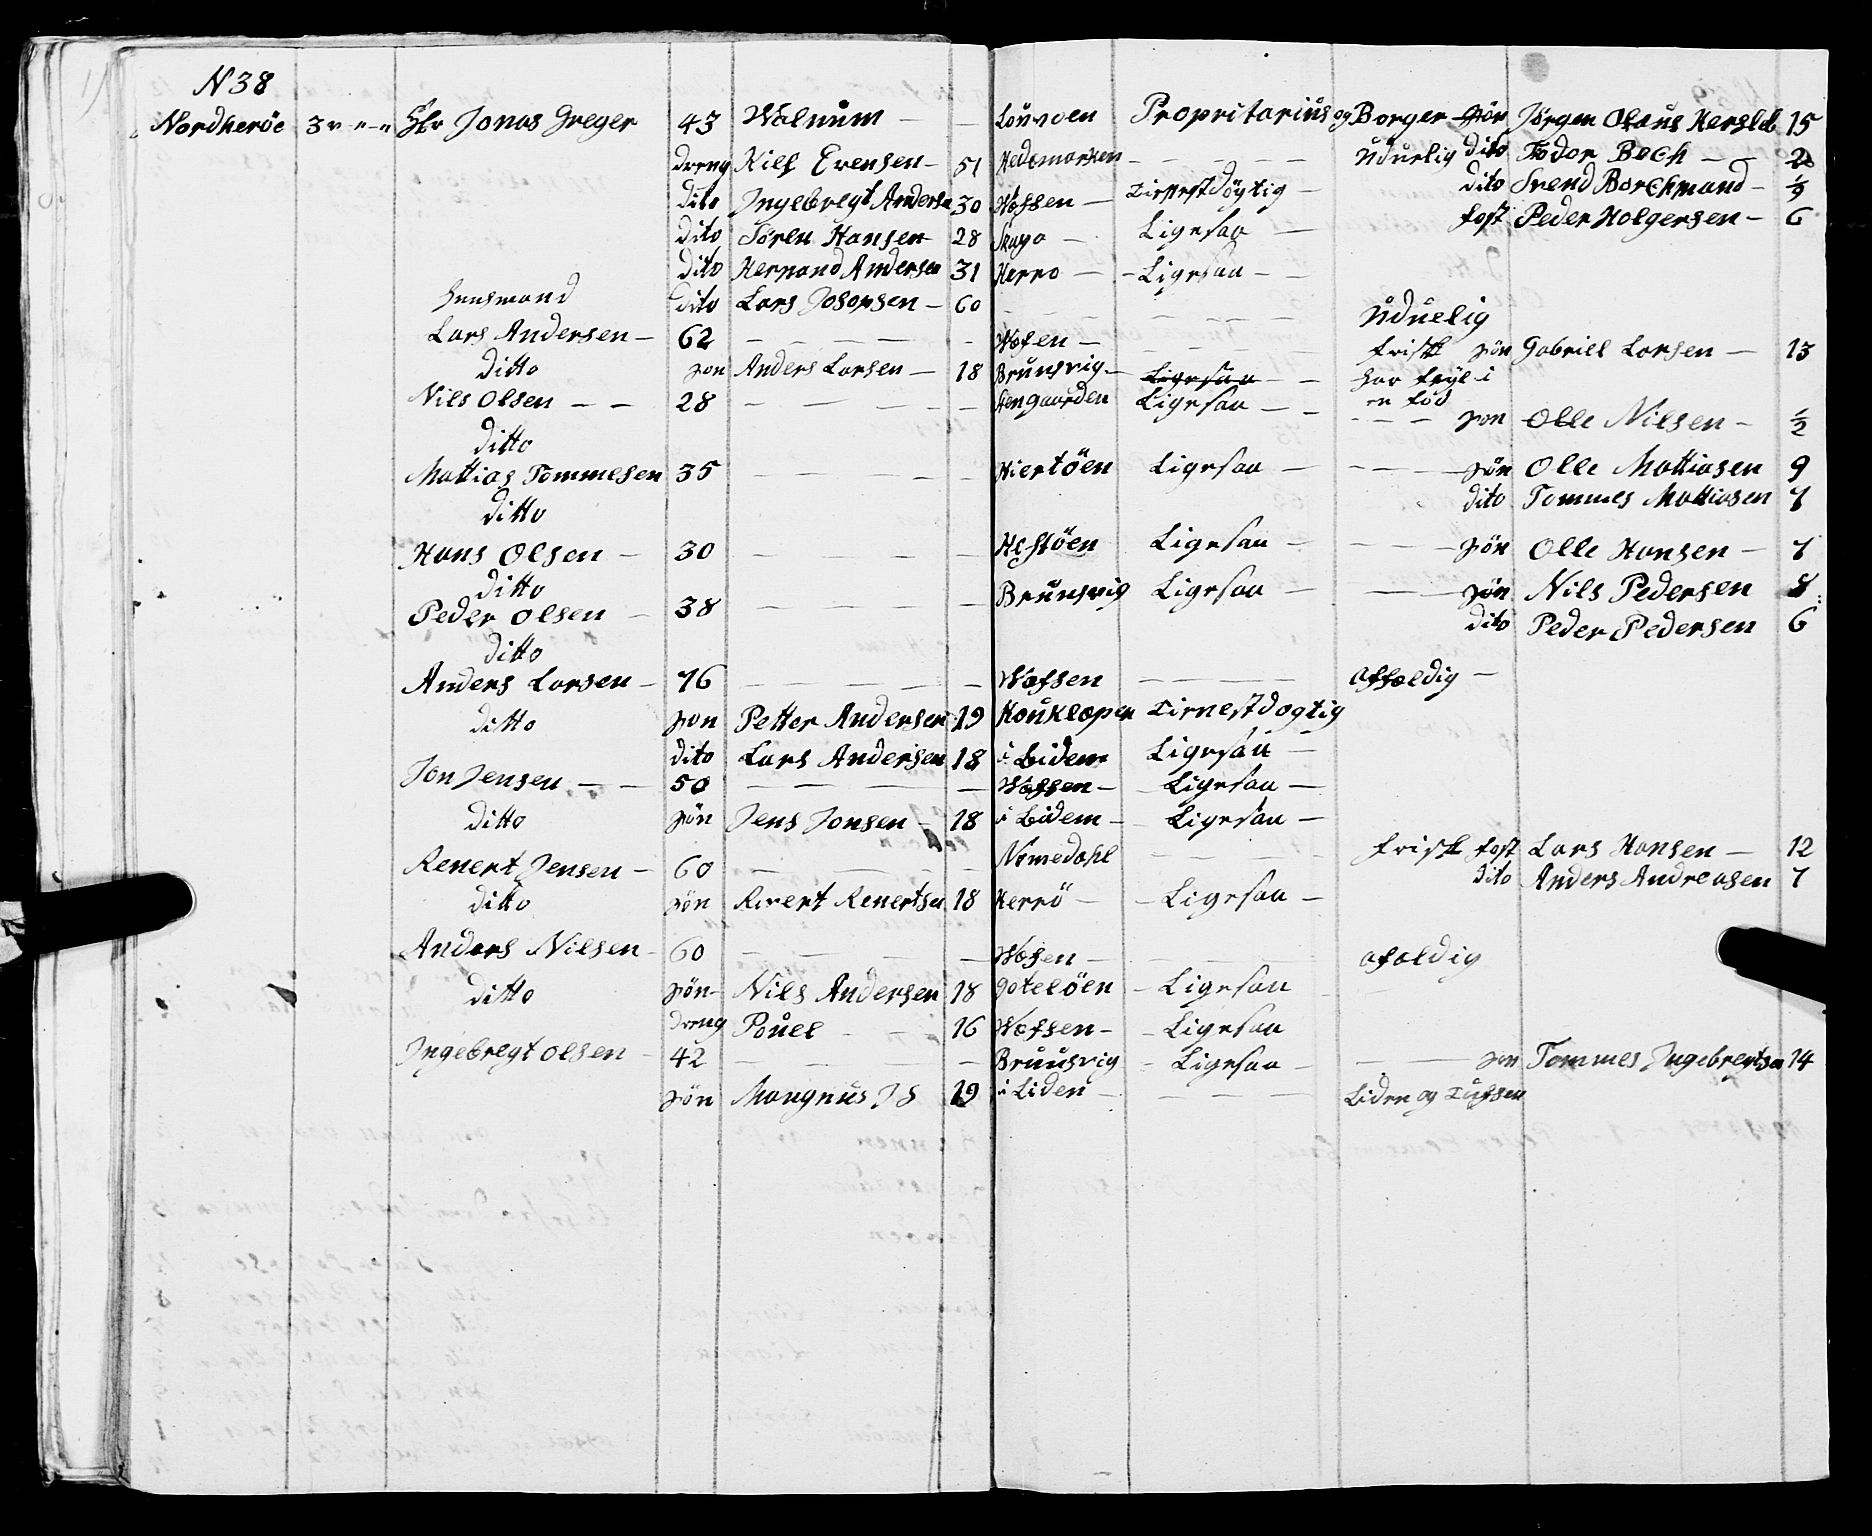 N 38
Nordherøe 3 Hr Jonas Greger 43 Walnum — Propritarius og Borger søn Jørgen Olaus Hersleb 15
dreng Kiel Evensen 51 Hedemarken — uduelig dito Fredor Bech — 2
dito Ingebregt Andersn 30 Wefsen — Tienestdögtig — dito Svend Borchmand 1/9
dito Sören Hansen 28 — Ligesaa — fost Peder Holgersen — 6
dito Hernand Andersen 31 Herro — Ligesaa —
Huusmand dito Lars Josepsen — 60 — uduelig
Lars Andersen — 62 — Wefen — frisk søn Gabriell Larsen — 13
ditto søn Anders Larsen — 18 Brunsvig — Ligesaa — har feyl i en fod
Nils Olsen — 28 — Stengaarden Ligesaa — søn Olle Nilsen — 1/2
ditto
Mattias Tommesen 35 — Hiertöen Ligesaa — søn Olle Mattiasen 9
ditto dito Tommes Mattiasen 7
Hans Olsen — 30 — Hestöen Ligesaa — søn Olle Hansen — 7
ditto
Peder Olsen — 38 — Brunsvig Ligesaa — søn Nils Pedersen 8
ditto dito Peder Pedersen 6
Anders Larsen — 76 — Wefsen — affældig —
ditto søn Petter Andersen 19 Houklopen Tienestdogtig
dito Lars Andersen 18 i Lidem Ligesaa —
Jon Jensen — 50 — Wefsen — Ligesaa —
ditto søn Jens Jonsen — 18 i Lidem — Ligesaa —
Renert Jensen — 60 — Nomedahl — frisk fost Lars Hansen — 12
ditto søn Renert Renertsen 18 Herrö — Ligesaa — dito Anders Andreasen 7
Anders Nilsen 60 — Wefen — afældig
ditto søn Nils Andersen 18 Joteløen — Ligesaa
dreng Pouel — 16 Wefsen — Ligesaa
Ingebregt Olsen — 42 — Brunsvig — Ligesaa — søn Tommes Ingebregtsen 14
søn Mangnus JS 19 i Liden — Liden og Tufsen